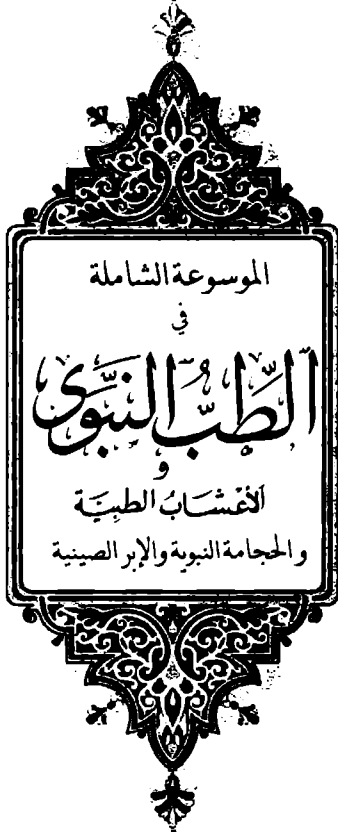 الموسوعة الشاملة
في
الطِّبُّ النَّبَوِى
و
الأَعْشَابُ الطبِيَّة
والحجامة النبوية والإبر الصينية